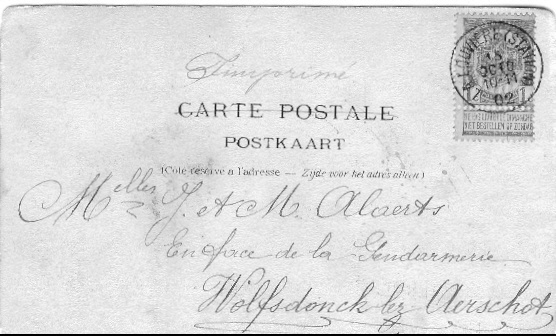 Imprimé
CARTE POSTALE
POSTKAART
(Côté réservé à l'adresse — Zijde voor het adres alleen)
Melles J. et M. Alaerts
En face de la Gendarmerie
Wolfsdonck lez Aerschot
(STATION)
02
NE PAS LIVRER LE DIMANCHE
NIET BESTELLEN OP ZONDAG